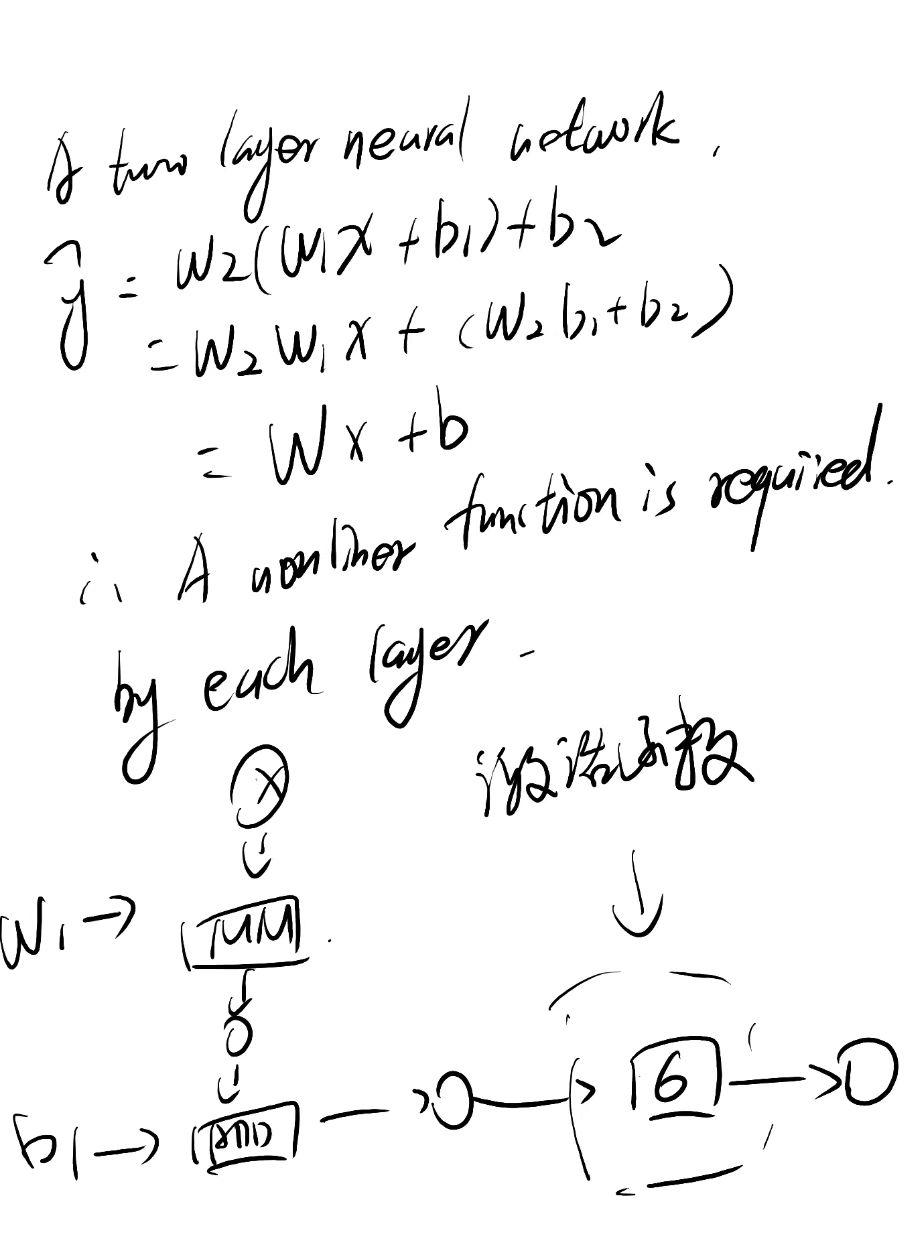 A two layer neural network.
ŷ = W2(W1X + b1) + b2
= W2 W1 X + (W2 b1 + b2)
= Wx + b
∴ A nonliner function is required.
by each layer.
激活函数
X
W1 → MM
b1 → ADD
σ